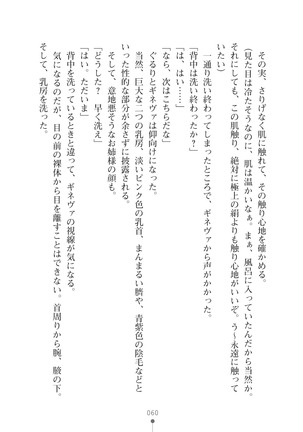 その実、さりげなく肌に触れて、その触り心地を確かめる。
（見た目は冷たそうなのに、肌は温かいなぁ。まぁ、風呂に入っていたんだから当然か。
それにしても、この肌触り、絶対に極上の絹よりも触り心地がいいぞ。う〜永遠に触って
いたい）
一通り洗い終わってしまったところで、ギネヴァから声がかかった。
「背中は洗い終わったか？」
「は、はい……」
「なら、次はこちらだな」
ぐるりとギネヴァは仰向けになった。
当然、巨大な二つの乳房、淡いピンク色の乳首、まんまるい臍や、青紫色の陰毛などと
いった性的な部分が余さずに披露される。
そして、意地悪そうなお姉様の顔も。
「どうした？　早く洗え」
「はい。ただいま」
背中を洗っているときと違って、ギネヴァの視線が気になる。
気になるのだが、目の前の裸体から目を離すことはできない。首周りから腕、腋の下。
そして、乳房を洗った。
060